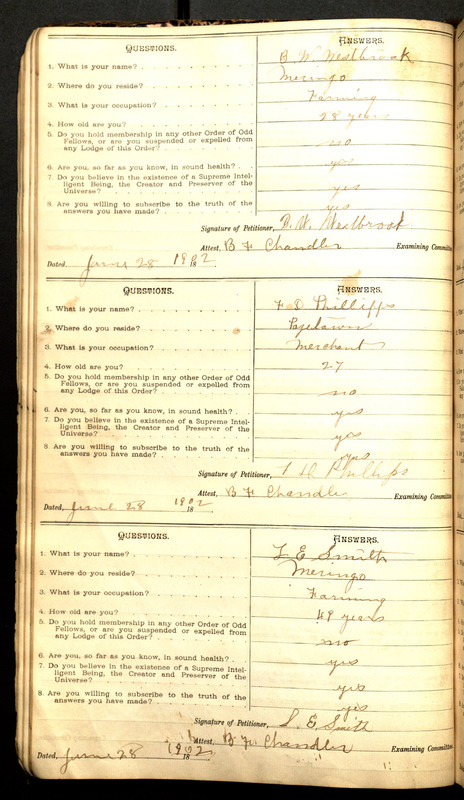 QUESTIONS. ANSWERS.
1. What is your name? B. W. Westbrook
2. Where do you reside? Meringo
3. What is your occupation? Farming
4. How old are you? 28 years
5. Do you hold membership in any other Order of Odd
Fellows, or are you suspended or expelled from
any Lodge of this Order? no
6. Are you, so far as you know, in sound health? yes
7. Do you believe in the existence of a Supreme Intel-
ligent Being, the Creator and Preserver of the
Universe? yes
8. Are you willing to subscribe to the truth of the
answers you have made? yes
Signature of Petitioner, B. W. Westbrook
Attest, B F Chandler Examining Committe
Dated, June 28 1902 18
QUESTIONS. ANSWERS.
1. What is your name? F D Phillips
2. Where do you reside?
3. What is your occupation? Merchant
4. How old are you? 27
5. Do you hold membership in any other Order of Odd
Fellows, or are you suspended or expelled from
any Lodge of this Order? no
6. Are you, so far as you know, in sound health? yes
7. Do you believe in the existence of a Supreme Intel-
ligent Being, the Creator and Preserver of the
Universe? yes
8. Are you willing to subscribe to the truth of the
answers you have made? yes
Signature of Petitioner, F D Phillips
Attest, B F Chandler Examining Committe
Dated, June 28 1902 18
QUESTIONS. ANSWERS.
1. What is your name? L E Smith
2. Where do you reside? Meringo
3. What is your occupation? Farming
4. How old are you? 49 years
5. Do you hold membership in any other Order of Odd
Fellows, or are you suspended or expelled from
any Lodge of this Order? no
6. Are you, so far as you know, in sound health? yes
7. Do you believe in the existence of a Supreme Intel-
ligent Being, the Creator and Preserver of the
Universe? yes
8. Are you willing to subscribe to the truth of the
answers you have made? yes
Signature of Petitioner, L. E. Smith
Attest, B F Chandler Examining Committe
Dated, June 28 1902 18